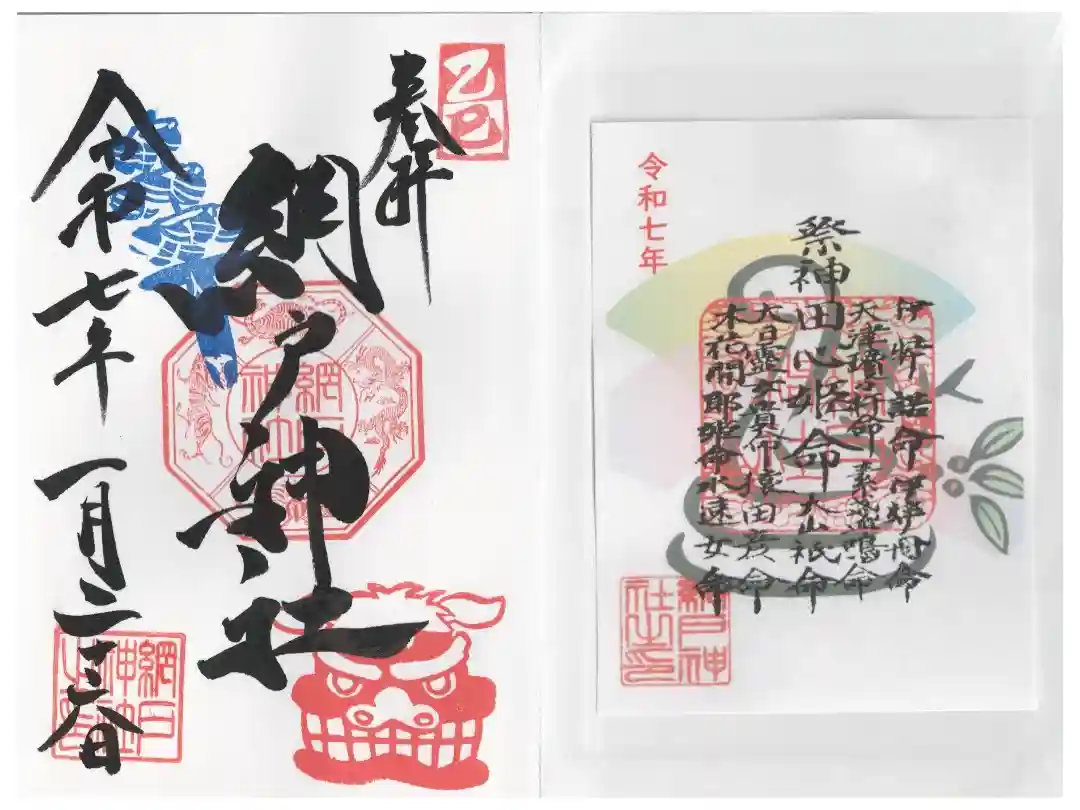 乙巳
奉拝
網戸神社
網戸神社
令和七年 一月二十六日
網戸神社之印
令和七年
伊弉諾命 伊弉冉命
素盞嗚命
祭神 田心姫命 大山祇命
大日霊女貴命 猿田彦命
木花開耶姫命 水速女命
網戸神社之印